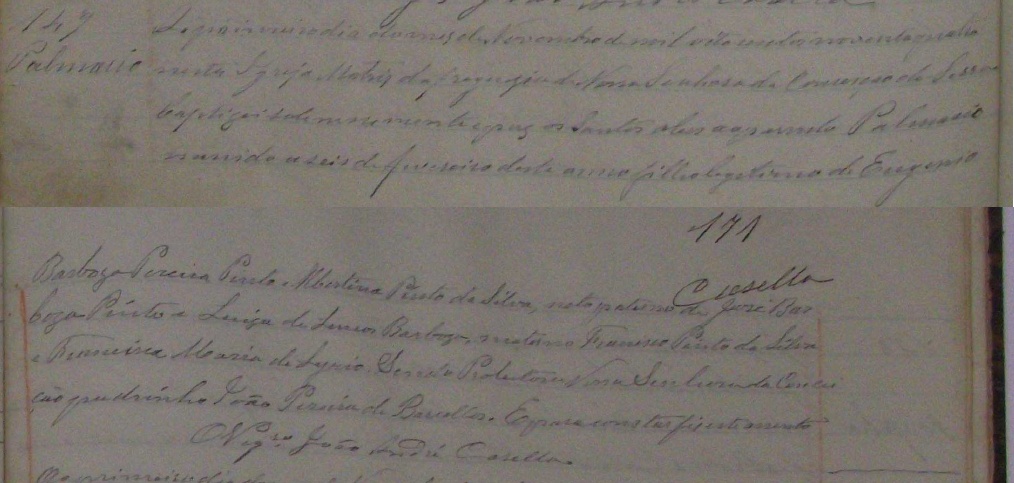 147
Palmasio
Ao primeiro dia do mes de Novembro de mil oito centos noventa quatro
nesta Igreja Matris da freguezia de Nossa Senhora da Conceição da Serra
baptizei solemnemente e puz os Santos oleos a o parvulo Palmasio
nascido a seis de fevereiro deste anno filho legitimo de Eugenio
171
Casella
Barboza Pereira Pinto e Albertina Pinto da Silva, neto paterno de José Bar
boza Pinto e Luiza de Barboza, materno Francisco Pinto da Silva
e Francisca Maria de Sendo Protectora Nossa Senhora da Concei
ção e padrinho João Pereira de Barcellos. E para constar fiz este assento
O Vigro João André Casella.
Ao primeiro dia do mes de